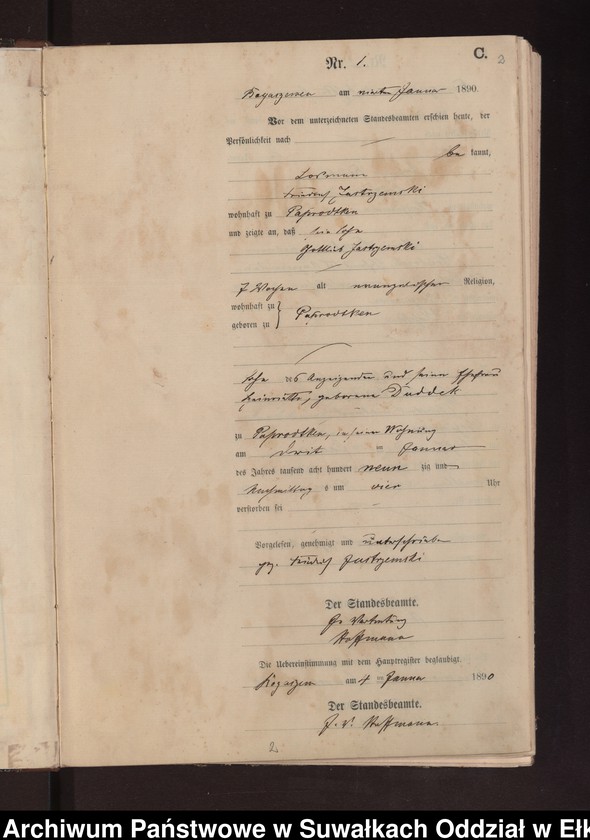 C.
2
Nr. 1.
am vierten Januar 1890.
Vor dem unterzeichneten Standesbeamten erschien heute, der
Persönlichkeit nach
be kannt,
Losmann
Friedrich Jastrzemski
wohnhaft zu Paprodtken
und zeigte an, daß sein Sohn
Gottlieb Jastrzemski
7 Wochen alt evangelischer Religion,
wohnhaft zu
geboren zu } Paprodtken
Sohn des Anzeigenden und seiner Ehefrau
Henriette, geborene Duddek
zu Paprodtken, in seiner Wohnung
am dritten Januar
des Jahres tausend acht hundert neun zig und
Nachmittags um vier Uhr
verstorben sei
Vorgelesen, genehmigt und unterschrieben
gez. Friedrich Jastrzemski
Der Standesbeamte.
In Vertretung
Hoffmann
Die Uebereinstimmung mit dem Hauptregister beglaubigt.
am 4 ten Januar 1890
Der Standesbeamte.
J. V. Hoffmann.
2
Archiwum Państwowe w Suwałkach Oddział w Ełk